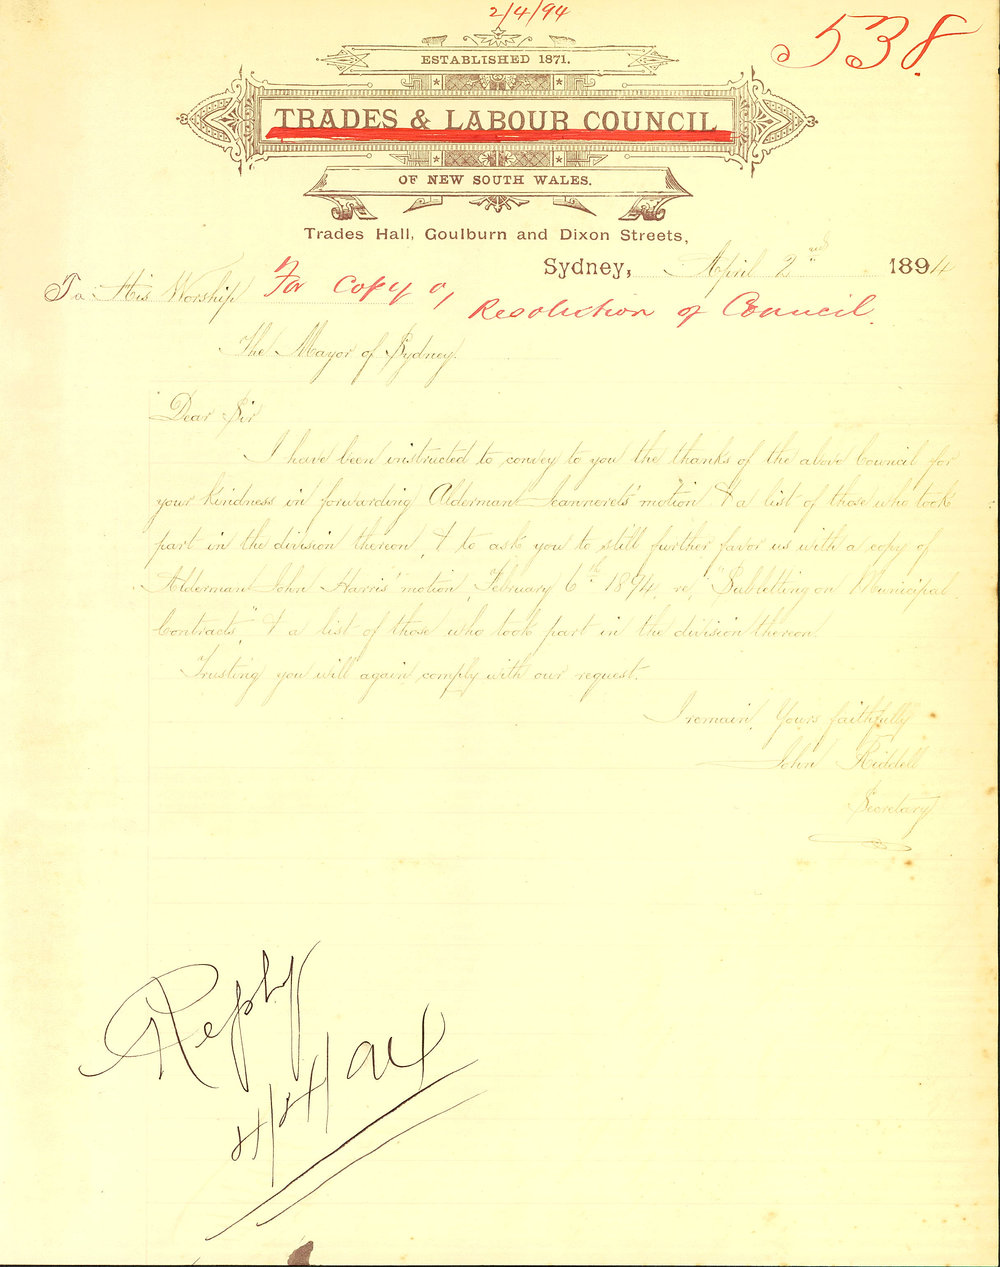 2/4/94
538.
ESTABLISHED 1871.
TRADES & LABOUR COUNCIL
OF NEW SOUTH WALES.
Trades Hall, Goulburn and Dixon Streets,
Sydney, April 2nd 1894
To His Worship
For Copy of
Resolution of Council.
The Mayor of Sydney.
Dear Sir
I have been instructed to convey to you the thanks of the above Council for
your kindness in forwarding Alderman Jeannerets' motion & a list of those who took
part in the division thereon, & to ask you to still further favor us with a copy of
Alderman John Harris' motion, February 6th 1894, re, "Subletting on Municipal
Contracts", & a list of those who took part in the division thereon.
Trusting you will again comply with our request.
I remain, Yours faithfully
John Riddell
Secretary
Reply
4/4/94